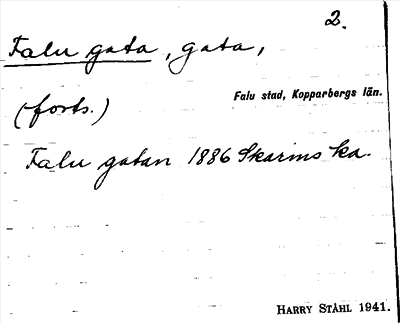 2.
Falu gata, gata,
Falu stad, Kopparbergs län.
(forts.)
Falu gatan 1886 Skarins ka.
HARRY STÅHL 1941.